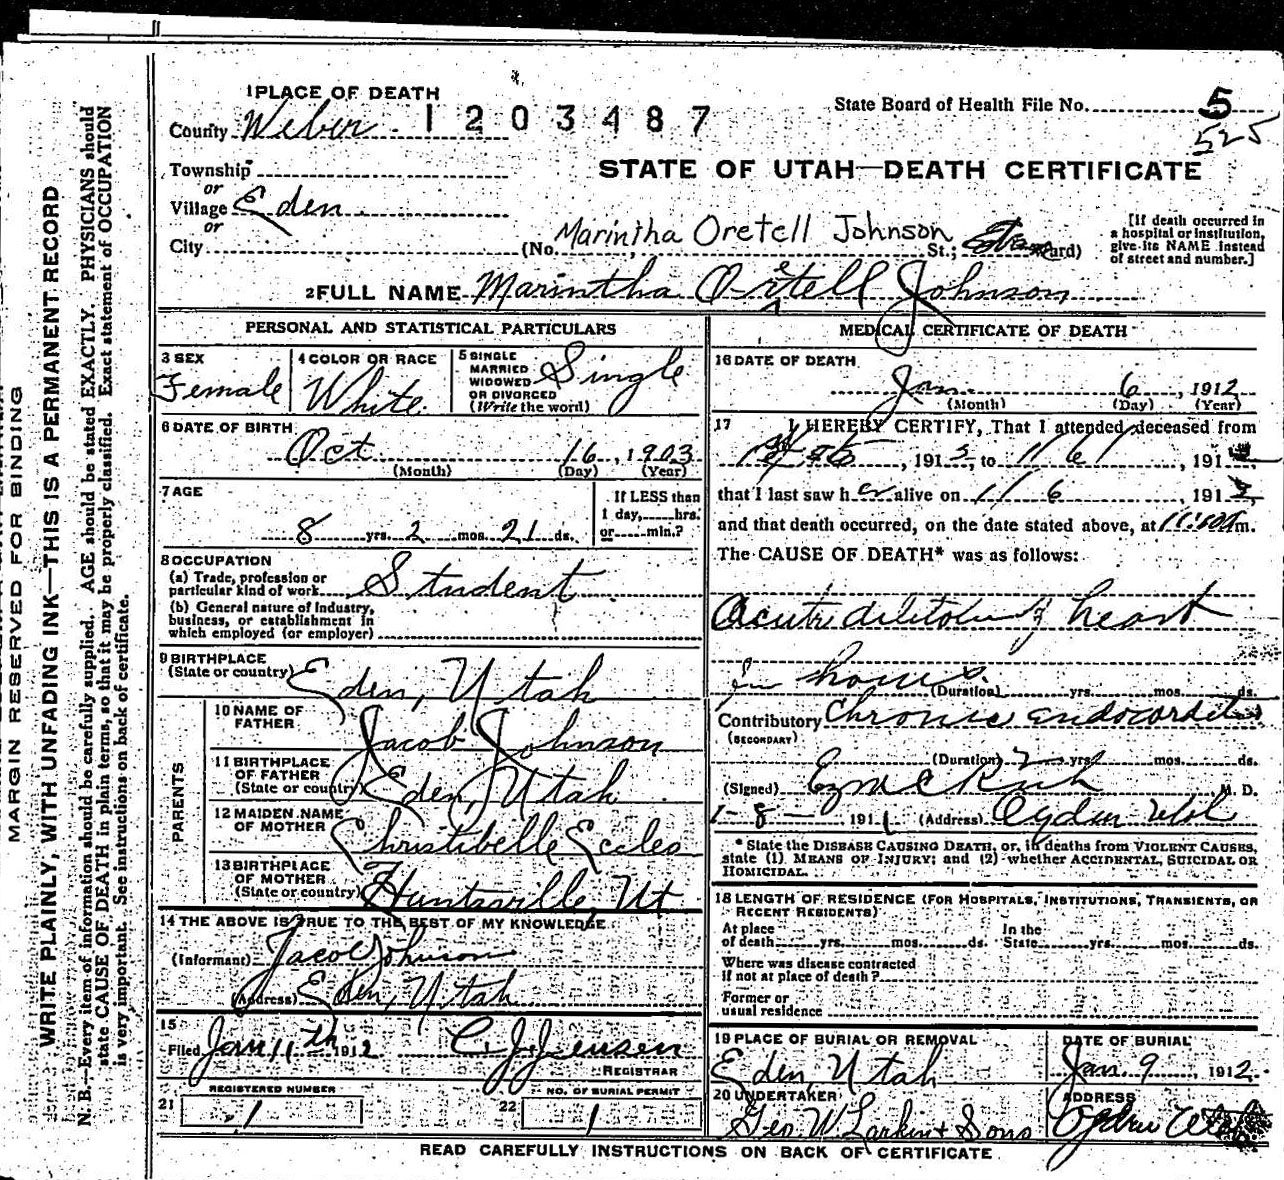 1 PLACE OF DEATH
1203487
State Board of Health File No. 5
525
County Weber
STATE OF UTAH—DEATH CERTIFICATE
Township
or
Village Eden
or
City
(No. Marintha Oretell Johnson St.; Ward)
[If death occurred in
a hospital or institution,
give its NAME instead
of street and number.]
2 FULL NAME Marintha Oretell Johnson
PERSONAL AND STATISTICAL PARTICULARS
3 SEX
Female
4 COLOR OR RACE
White
5 SINGLE
MARRIED
WIDOWED
OR DIVORCED
(Write the word)
Single
6 DATE OF BIRTH
Oct 16, 1903
(Month) (Day) (Year)
7 AGE
8 yrs. 2 mos. 21 ds.
If LESS than
1 day, hrs.
or min.?
8 OCCUPATION
(a) Trade, profession or
particular kind of work Student
(b) General nature of industry,
business, or establishment in
which employed (or employer)
9 BIRTHPLACE
(State or country) Eden, Utah
PARENTS
10 NAME OF
FATHER Jacob Johnson
11 BIRTHPLACE
OF FATHER
(State or country) Eden, Utah
12 MAIDEN NAME
OF MOTHER Christibelle Eccles
13 BIRTHPLACE
OF MOTHER
(State or country) Huntsville, Ut
14 THE ABOVE IS TRUE TO THE BEST OF MY KNOWLEDGE
(Informant) Jacob Johnson
(Address) Eden, Utah
15
Filed Jan 11th 1912 C. J. Jensen
REGISTRAR
REGISTERED NUMBER
21 1
NO. OF BURIAL PERMIT
22 1
MEDICAL CERTIFICATE OF DEATH
16 DATE OF DEATH
Jan. 6, 1912
(Month) (Day) (Year)
17 I HEREBY CERTIFY, That I attended deceased from
, 191 , to 1/6/, 191
that I last saw her alive on 1/6, 191
and that death occurred, on the date stated above, at m.
The CAUSE OF DEATH* was as follows:
Acute of heart
hours
(Duration) yrs. mos. ds.
Contributory Chronic endocarditis
(SECONDARY)
(Duration) 2 yrs. mos. ds.
(Signed) M. D.
1-8- 1911 (Address) Ogden Utah
* State the DISEASE CAUSING DEATH, or, in deaths from VIOLENT CAUSES,
state (1) MEANS OF INJURY; and (2) whether ACCIDENTAL, SUICIDAL OR
HOMICIDAL.
18 LENGTH OF RESIDENCE (FOR HOSPITALS, INSTITUTIONS, TRANSIENTS, OR
RECENT RESIDENTS)
At place
of death yrs. mos. ds.
In the
State yrs. mos. ds.
Where was disease contracted
if not at place of death?
Former or
usual residence
19 PLACE OF BURIAL OR REMOVAL
Eden, Utah
DATE OF BURIAL
Jan. 9, 1912
20 UNDERTAKER
Geo. W Larkin & Sons
ADDRESS
Ogden Utah
READ CAREFULLY INSTRUCTIONS ON BACK OF CERTIFICATE
MARGIN RESERVED FOR BINDING
WRITE PLAINLY, WITH UNFADING INK—THIS IS A PERMANENT RECORD
N. B.—Every item of information should be carefully supplied. AGE should be stated EXACTLY. PHYSICIANS should
state CAUSE OF DEATH in plain terms, so that it may be properly classified. Exact statement of OCCUPATION
is very important. See instructions on back of certificate.